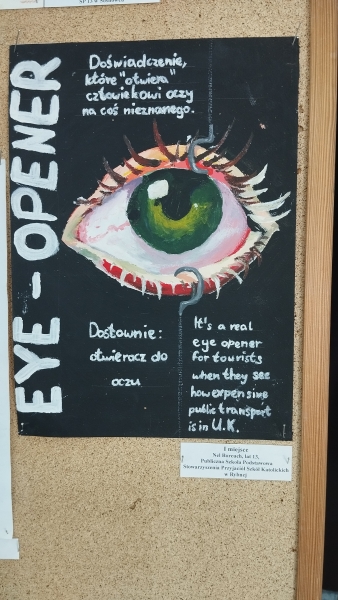 EYE-OPENER
Doświadczenie,
które "otwiera"
człowiekowi oczy
na coś nieznanego.
Dosłownie:
otwieracz do
oczu
It's a real
eye opener
for tourists
when they see
how expensive
public transport
is in U.K.
I miejsce
lat 13,
Publiczna Szkoła Podstawowa
Stowarzyszenia Przyjaciół Szkół Katolickich
w Rybnej